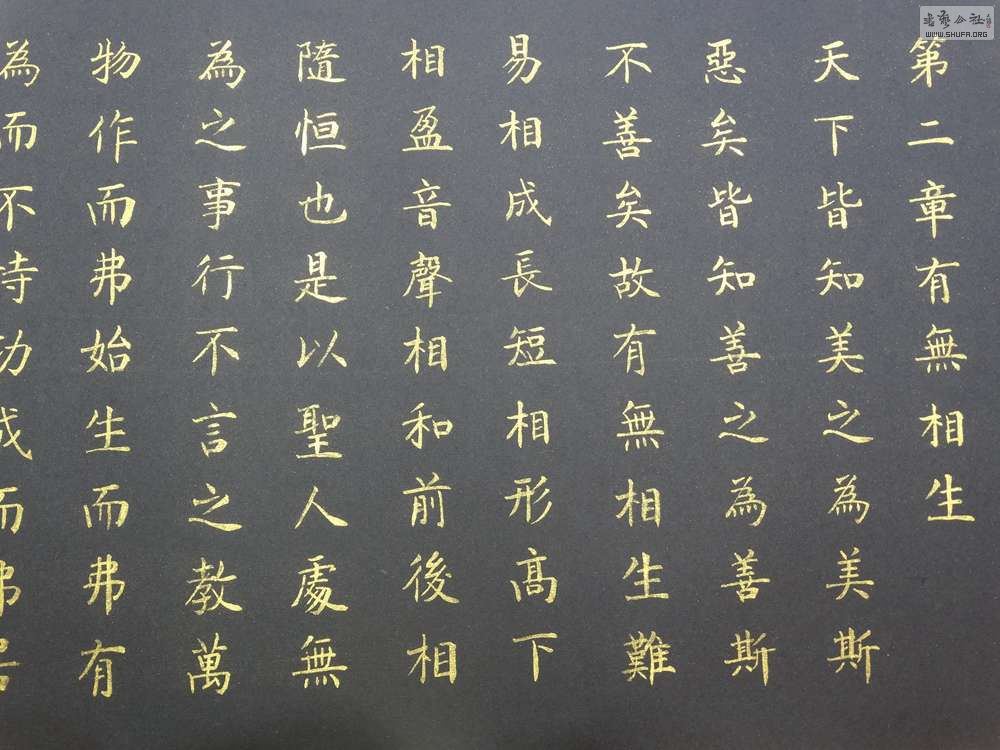 第二章有無相生
天下皆知美之為美斯
惡矣皆知善之為善斯
不善矣故有無相生難
易相成長短相形高下
相盈音聲相和前後相
隨恒也是以聖人處無
為之事行不言之教萬
物作而弗始生而弗有
為而不恃功成而弗居
WWW.SHUFA.ORG